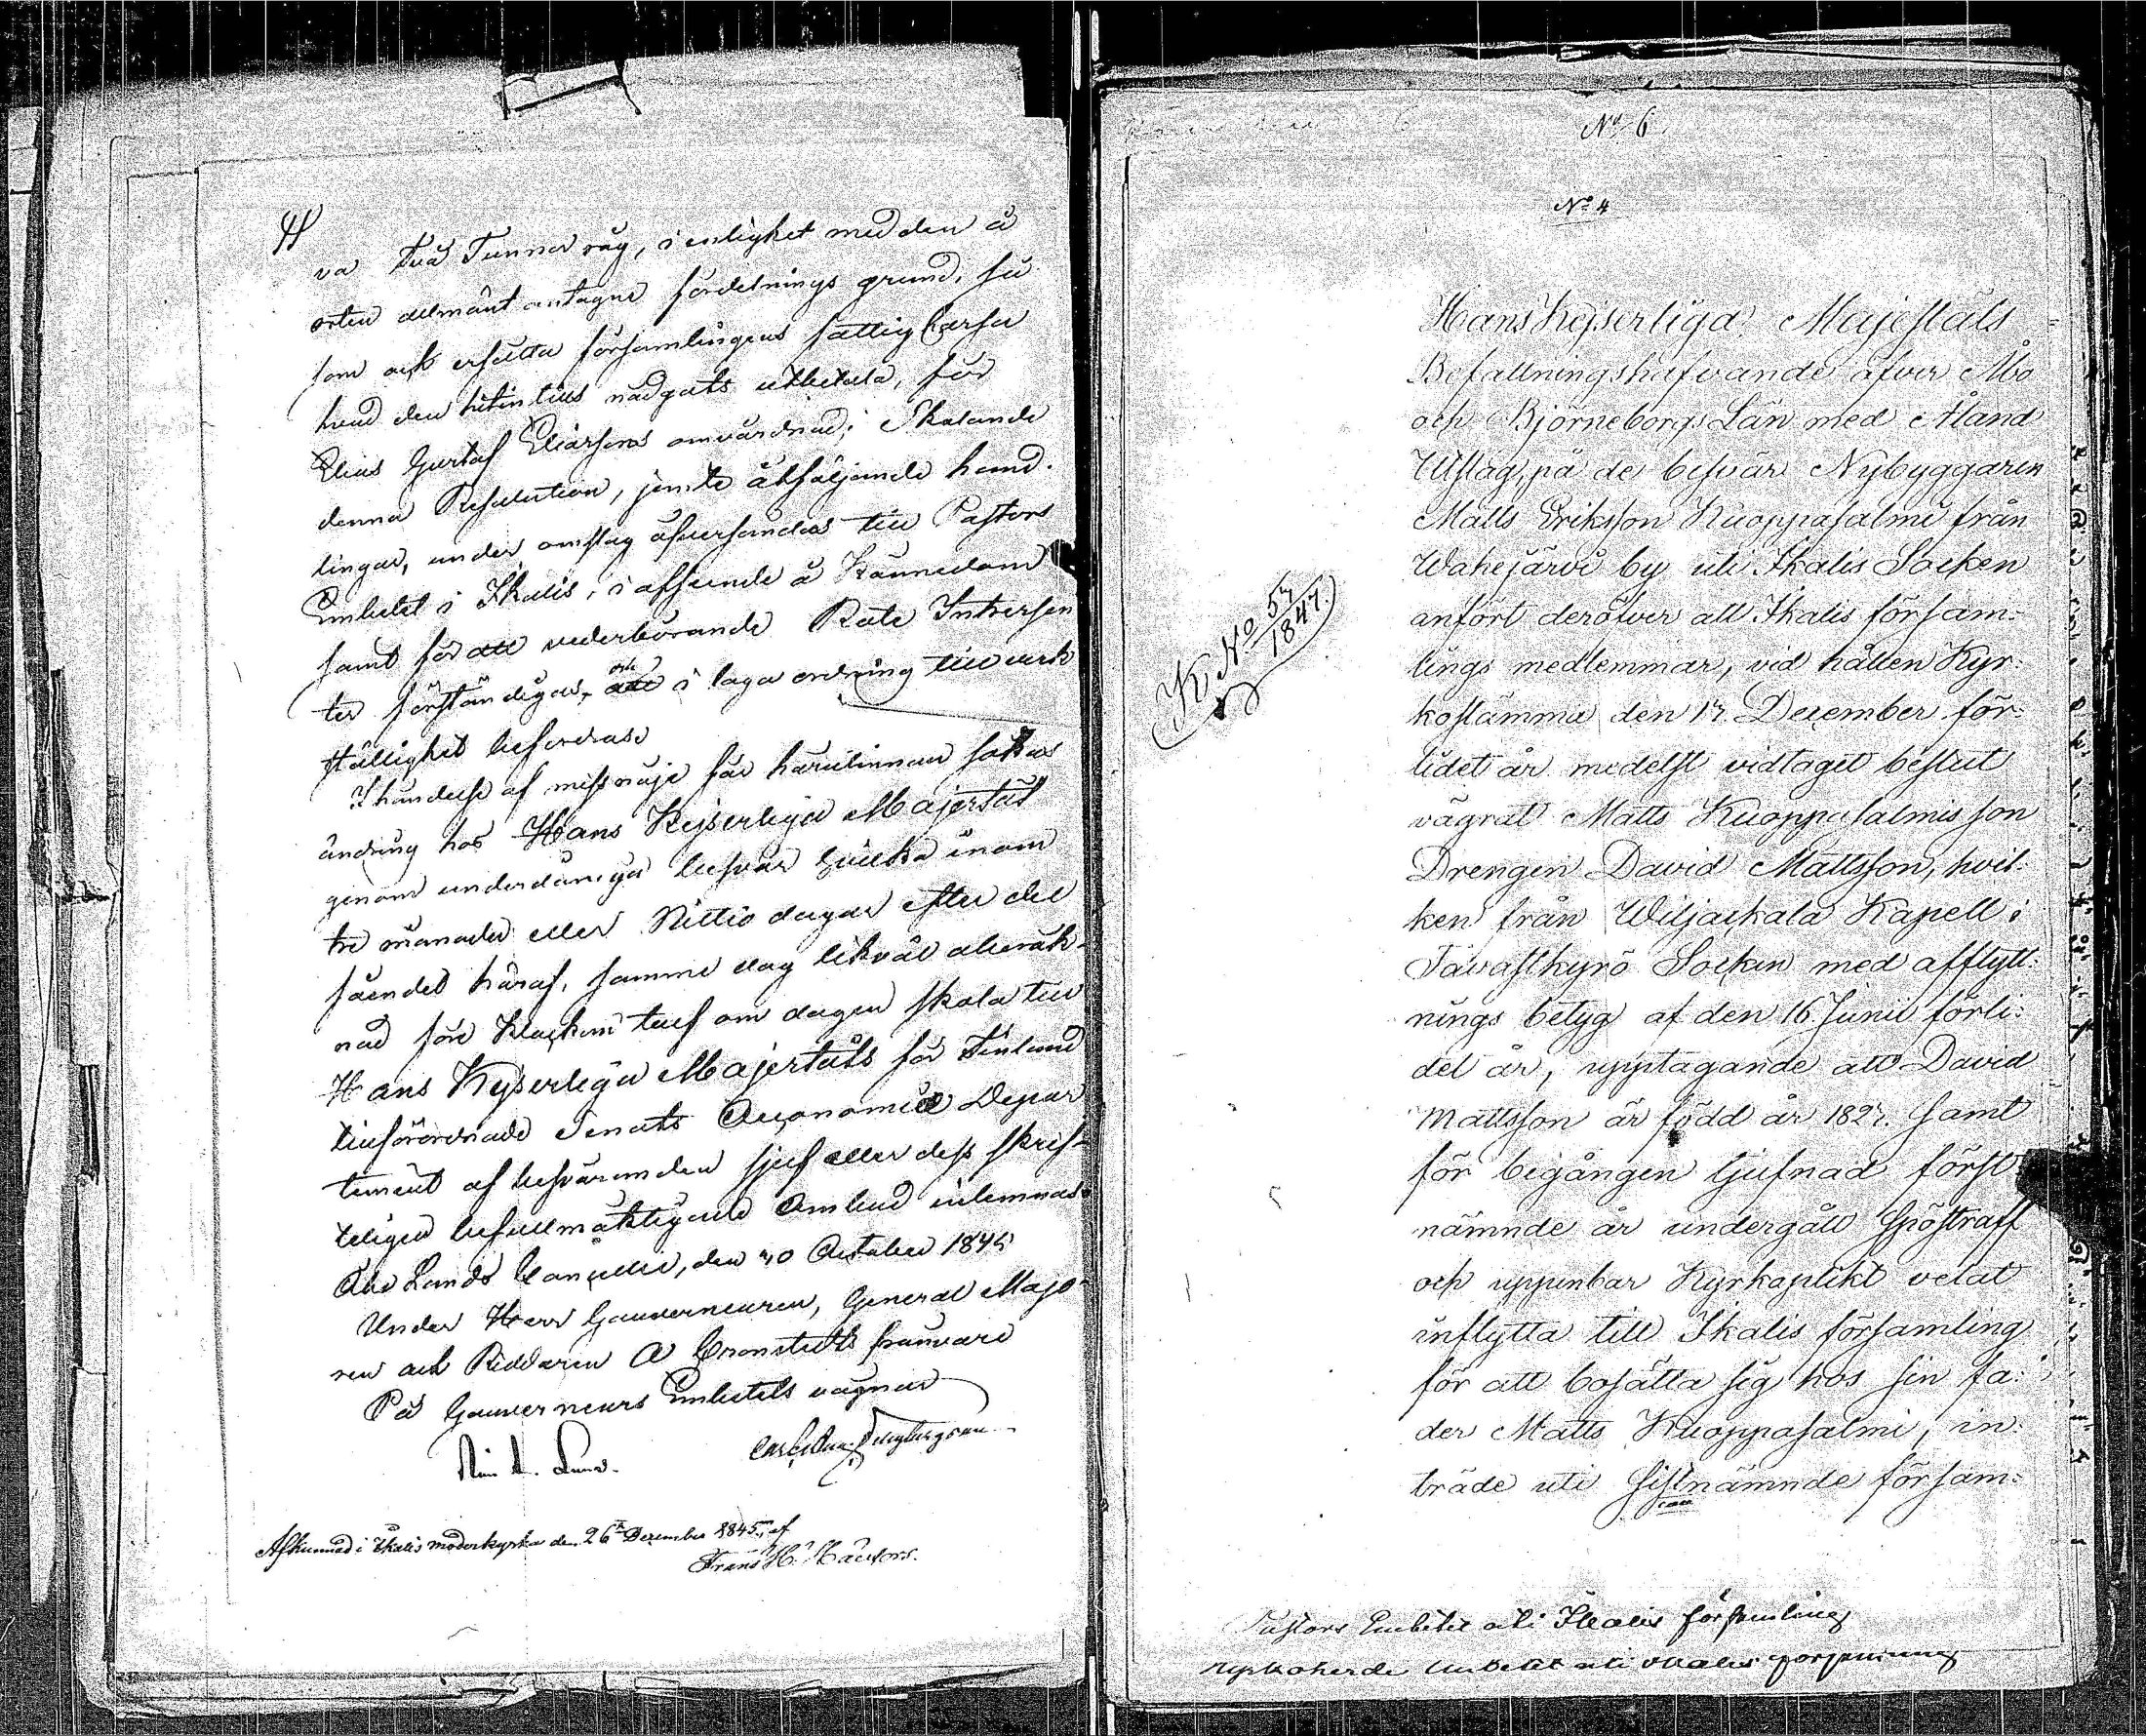 va Två Tunnor råg, i enlighet med den å
orten allmänt antagne fördelnings grund, få
som ock ersätta församlingens fattigkassa
hvad den hitintills nödgats utbetala, för
Elias Gustaf Eliassons omvårdnad; Skolande
denna Resolution, jemte åtföljande hand-
lingar, under omslag öfversändas till Pastors
Embetet i Ikalis, i afseende å Kännedom
samt för att vederbörande Rote Intressen
ter förständigas, och i laga ordning till verk
ställighet befordras
I händelse af missnöje får härutinnan sökas
ändring hos Hans Kejserliga Majestät
genom underdåniga besvär hvilka inom
tre månader eller Nittio dagar efter del
fåendet häraf, samme dag likväl oberäk-
nad före Klockan tolf om dagen skola till
Hans Kejserliga Majestäts för Finland
tillförordnade Senats Œconomiæ Depar
tement af besväranden sjelf eller dess skrif-
teligen befullmäktigade Ombud inlemnas.
Åbo Lands Cancellie, den 20 October 1845
Under Herr Gouverneuren, General Majo-
ren och Riddaren A Cronstedts frånvaro
På Gouverneurs Embetets vägnar
Afkunnad i Ikalis moderkyrka den 26 December 1845, af
Frans H.
No 6
No 4
Hans Kejserliga Majestäts
Befallningshafvande öfver Åbo
och Björneborgs Län med Åland
Utslag, på de besvär Nybyggaren
Matts Eriksson Kuoppasalmi från
Wahejärvi by uti Ikalis Socken
anfört deröfver att Ikalis försam-
lings medlemmar, vid hållen Kyr-
kostämma den 17. December för-
lidet år medelst vidtaget beslut
vägrat Matts Kuoppasalmis son
Drengen David Mattsson, hvil-
ken från Wiljackala Kapell i
Tavastkyrö Socken med afflytt-
nings betyg af den 16 Junii förli-
det år, upptagande att David
Mattsson är född år 1827. samt
för begången tjufnad först
nämnde år undergått spöstraff
och uppenbar Kyrkoplikt velat
inflytta till Ikalis församling
för att bosätta sig hos sin fa-
der Matts Kuoppasalmi, in-
träde uti sistnämnde försam-
K No 57
1847.
Pastors Embetet uti Ikalis församling
Kyrkoherde Embetet uti Ikalis församling